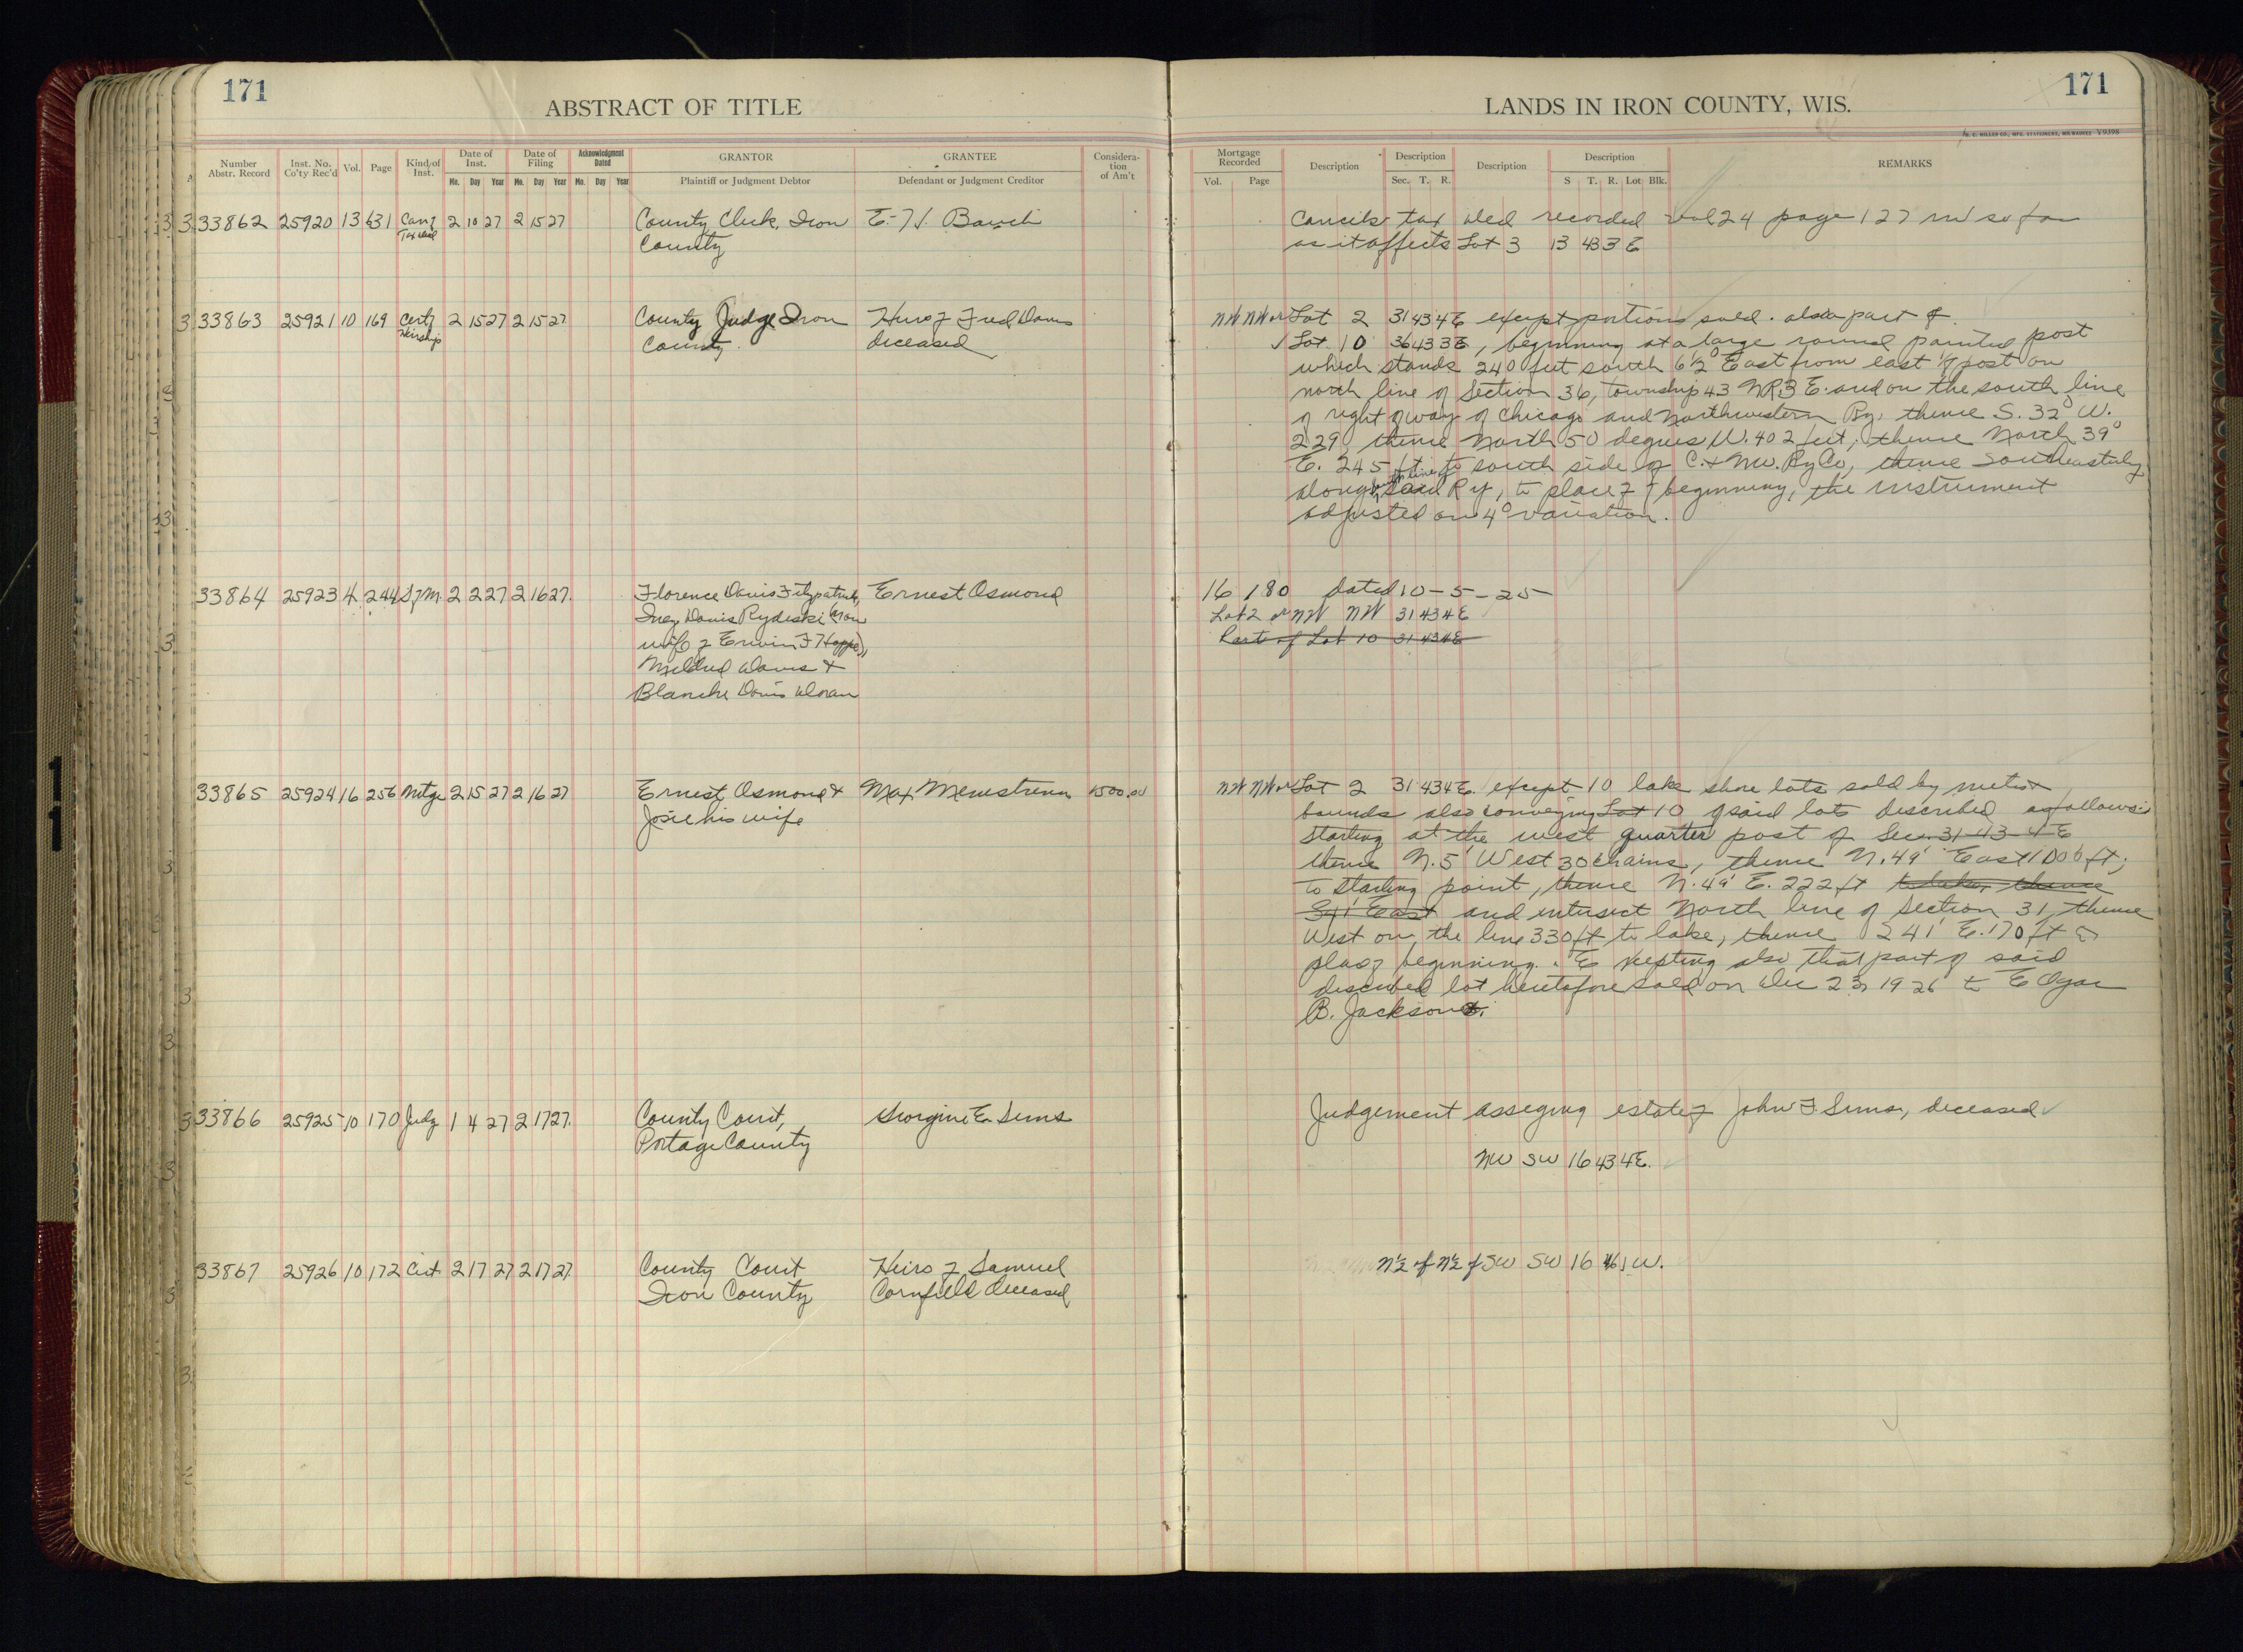 171
ABSTRACT OF TITLE
Number Abstr. Record Inst. No. Co'ty Rec'd Vol. Page Kind of Inst. Date of Inst. Mo. Day Year Date of Filing Mo. Day Year Acknowledgment Dated Mo. Day Year GRANTOR Plaintiff or Judgment Debtor GRANTEE Defendant or Judgment Creditor Considera-tion of Am't
33862 25920 13 631 Canz 2 10 27 2 15 27 County Clerk, Iron E. H.
Tax deed County
33863 25921 10 169 Certf 2 15 27 2 15 27 County Judge Iron Heirs of Fred Davis
Heirship County deceased
33864 25923 4 244 2 2 27 2 16 27. Florence Davis Fitzpatrick, Ernest Osmond
Inez Davis Rydeski (now
wife of Erwin F Hoppe),
Mildred Davis &
Blanche Davis Doran
33865 25924 16 256 Mtge 2 15 27 2 16 27 Ernest Osmond & Max 1500.00
Josie his wife
33866 25925 10 170 Judg 1 4 27 2 17 27. County Court, Georgine E. Sims
Portage County
33867 25926 10 172 Cert. 2 17 27 2 17 27 County Court Heirs of Samuel
Iron County Cornfield deceased
171
LANDS IN IRON COUNTY, WIS.
H. C. MILLER CO., MFG. STATIONERS, MILWAUKEE V9398
Mortgage Recorded Vol. Page Description Description Sec. T. R. Description Description S T. R. Lot Blk. REMARKS
Cancels tax deed recorded vol 24 page 127 in so far
as it affects Lot 3 13 43 3 E
NW NW or Lot 2 31 43 4 E except portions sold. also part of
Lot 10 36 43 3 E, beginning at a large round painted post
which stands 240 feet south 62° East from east 1/8 post on
north line of Section 36, township 43 N R. 3 E. and on the south line
of right of way of Chicago and Northwestern Ry, thence S. 32° W.
229, thence North 50 degrees W. 402 feet; thence North 39°
E. 245 ft. to south side of C. & NW. Ry Co, thence Southeasterly
along south line of said Ry, to place of beginning, the instrument
adjusted on 4° variation.
16 180 dated 10-5-25
Lot 2 or NW NW 31 43 4 E
Part of Lot 10 31 43 4 E
NW NW or Lot 2 31 43 4 E. except 10 lake shore lots sold by metes &
bounds also conveying Lot 10 of said lots described as follows:
Starting at the west quarter post of Sec. 31-43-4 E
thence N. 5' West 30 chains, thence N. 49' East 1006 ft;
to starting point, thence N. 49' E. 222 ft to lake, thence
S 41' East and intersect North line of Section 31, thence
West on the line 330 ft to lake, thence 241' E. 170 ft to
place of beginning. Excepting also that part of said
described lot heretofore sold on Dec 23, 1926 to Edgar
B. Jackson.
Judgement asseging estate of John F. Sims, deceased
NW SW 16 43 4 E.
N½ of N½ of SW SW 16 46 1 W.